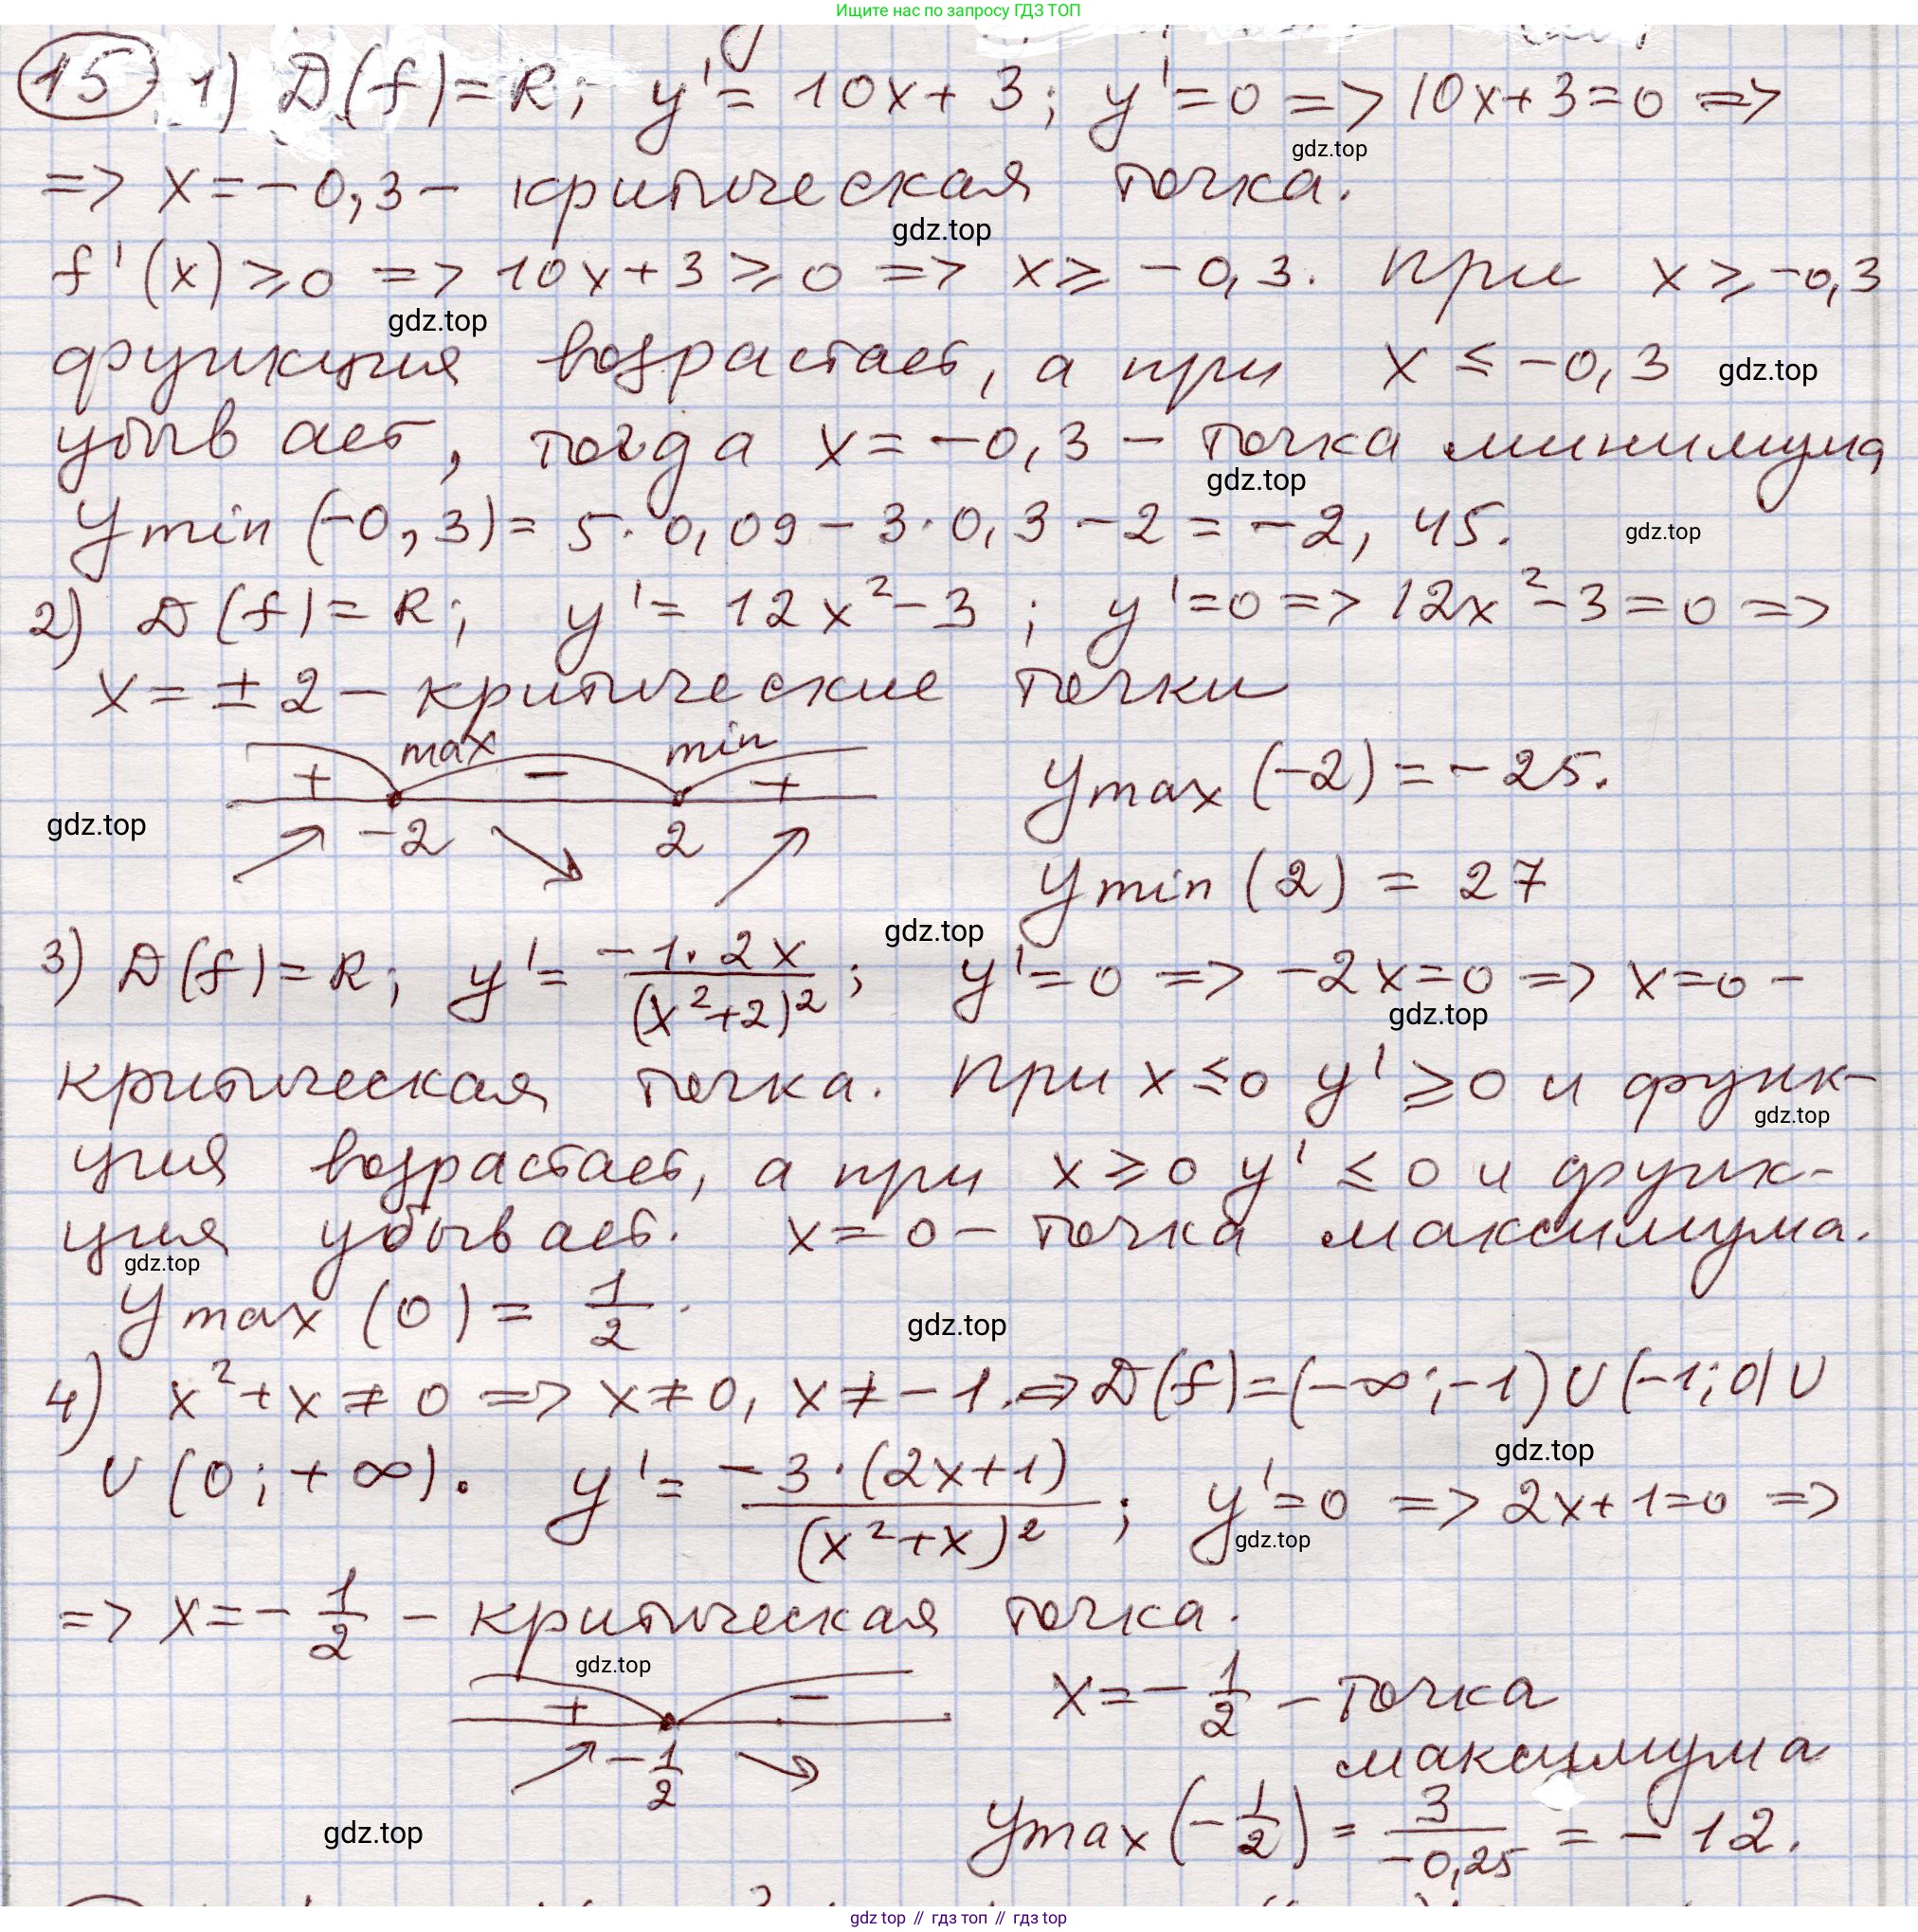 Ищите нас по запросу ГДЗ ТОП
15 1) D(f)=R; y'=10x+3; y'=0 => 10x+3=0 =>
gdz.top
=> x=-0,3 - критическая точка.
gdz.top
f'(x)⩾0 => 10x+3⩾0 => x⩾-0,3. при x⩾-0,3
gdz.top
функция возрастает, а при x≤-0,3 gdz.top
убывает, тогда x=-0,3 - точка минимума
gdz.top
y min (-0,3)=5·0,09-3·0,3-2=-2,45. gdz.top
2) D(f)=R; y'=12x²-3; y'=0 => 12x²-3=0 =>
x=±2 - критические точки
max min
+ - + y max (-2)=-25.
gdz.top -2 2
y min (2)=27
gdz.top
3) D(f)=R; y'=\frac{-1·2x}{(x²+2)²}; y'=0 => -2x=0 => x=0 -
gdz.top
критическая точка. При x≤0 y'⩾0 и функ-
gdz.top
ция возрастает, а при x⩾0 y'≤0 и функ-
ция убывает. x=0 - точка максимума.
gdz.top
y max (0)=\frac{1}{2}. gdz.top
4) x²+x≠0 => x≠0, x≠-1. => D(f)=(-∞;-1)∪(-1;0)∪
gdz.top
∪(0;+∞). y'=\frac{-3·(2x+1)}{(x²+x)²}; y'=0 => 2x+1=0 =>
gdz.top
=> x=-\frac{1}{2} - критическая точка.
gdz.top
+ - x=-\frac{1}{2} - точка
-\frac{1}{2} максимума
gdz.top y max (-\frac{1}{2})=\frac{3}{-0,25}=-12.
gdz top // гдз топ // гдз top